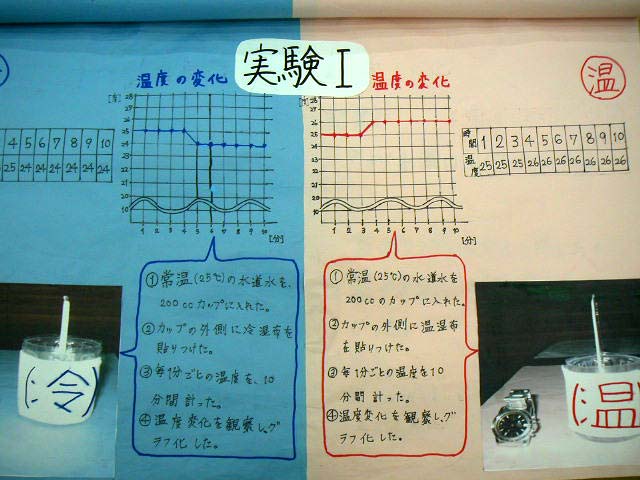 実験I
温度の変化
[度]
28
27
26
25
24
23
22
21
20
10
1 2 3 4 5 6 7 8 9 10
[分]
4 5 6 7 8 9 10
25 24 24 24 24 24 24
①常温(25℃)の水道水を、
200ccカップに入れた。
②カップの外側に冷湿布を
貼りつけた。
③毎1分ごとの温度を、10
分間計った。
④温度変化を観察し、グ
ラフ化した。
(冷)
温度の変化
[度]
28
27
26
25
24
23
22
21
20
10
1 2 3 4 5 6 7 8 9 10
[分]
温
時間 1 2 3 4 5 6 7 8 9 10
温度 25 25 25 26 26 26 26 26 26 26
①常温(25℃)の水道水を
200ccのカップに入れた。
②カップの外側に温湿布
を貼りつけた。
③毎1分ごとの温度を10
分間計った。
④温度変化を観察し、グ
ラフ化した。
(温)